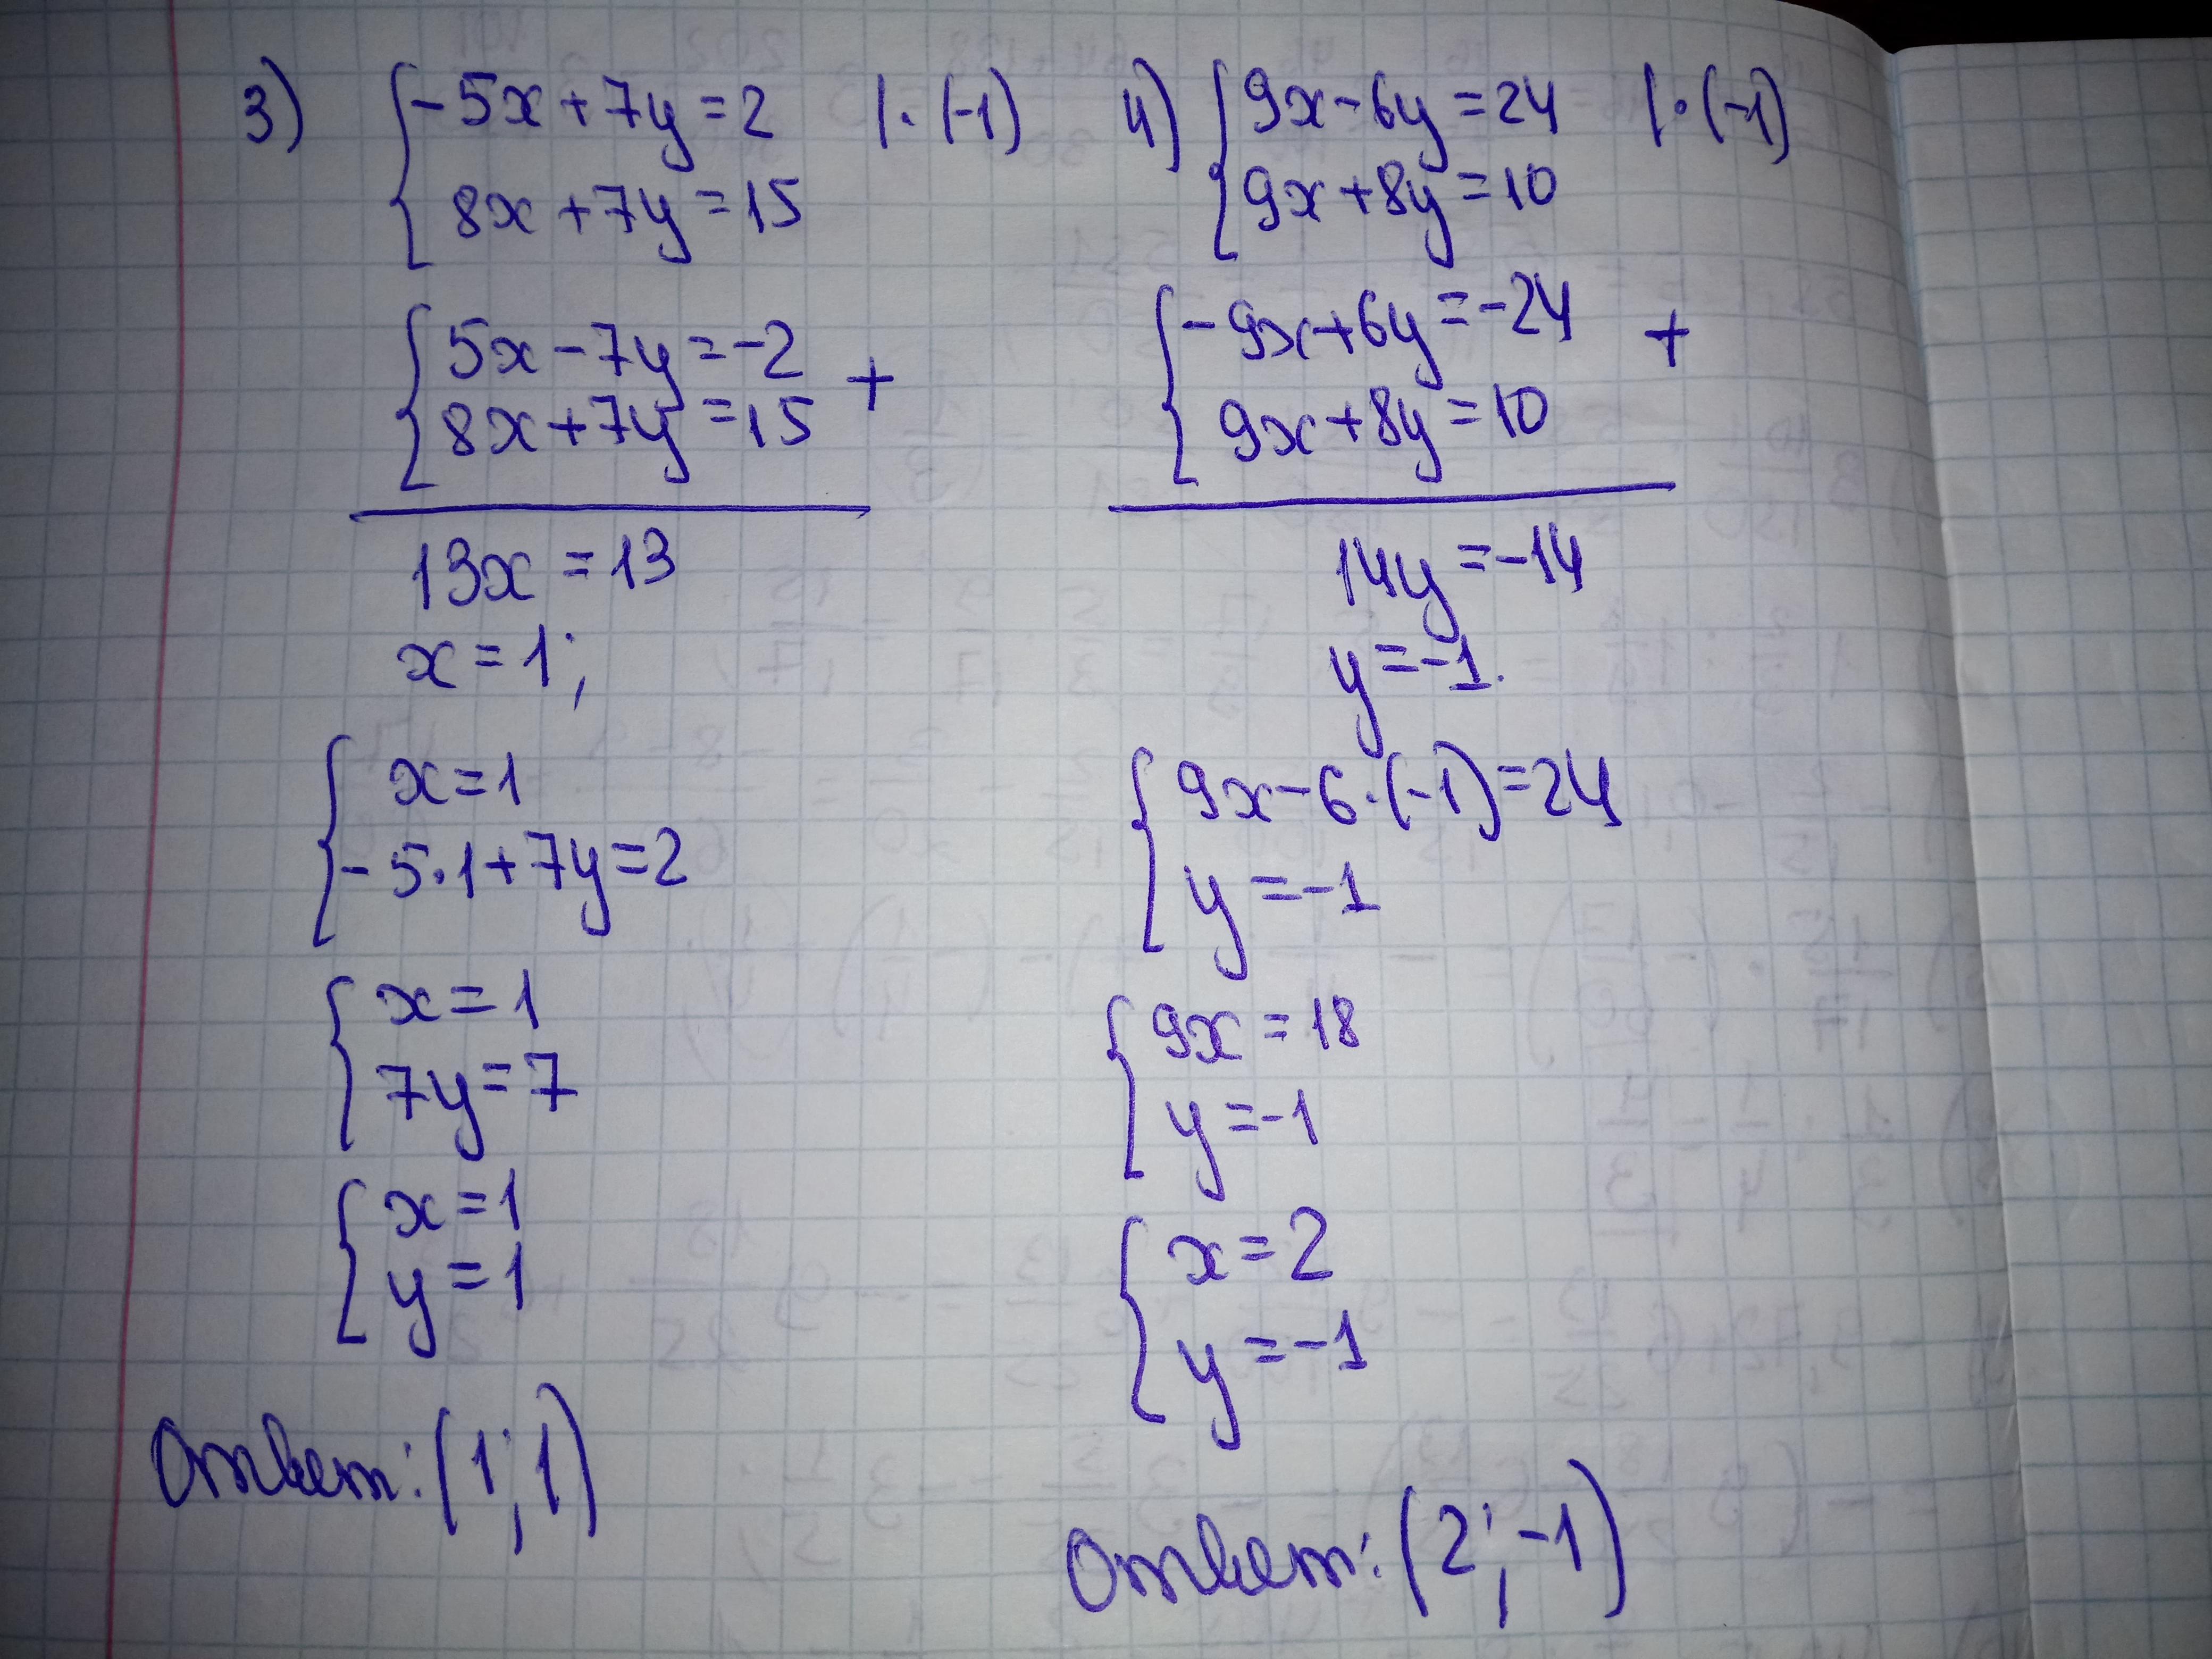 3) { -5x+7y=2 |·(-1)
8x+7y=15
{ 5x-7y=-2 +
8x+7y=15
13x=13
x=1;
{ x=1
-5·1+7y=2
{ x=1
7y=7
{ x=1
y=1
Ответ: (1;1)
4) { 9x-6y=24 |·(-1)
9x+8y=10
{ -9x+6y=-24 +
9x+8y=10
14y=-14
y=-1.
{ 9x-6·(-1)=24
y=-1
{ 9x=18
y=-1
{ x=2
y=-1
Ответ: (2;-1)